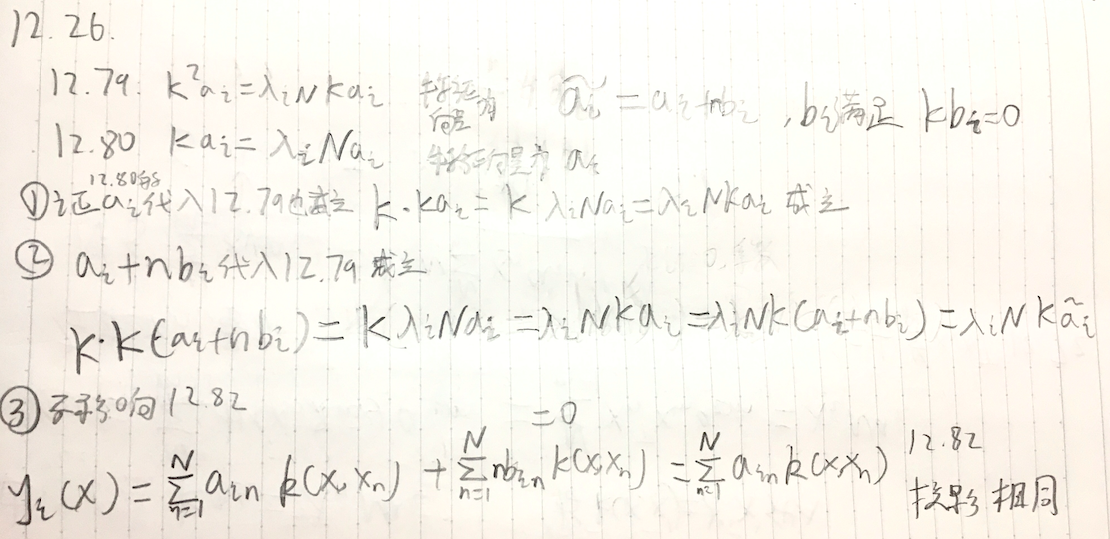 12.26.
12.79. K²aᵢ=λᵢNKaᵢ 特征向量 ãᵢ=aᵢ+nbᵢ, bᵢ满足 Kbᵢ=0
12.80 Kaᵢ=λᵢNaᵢ 特征向量为 aᵢ
①证12.80的aᵢ代入12.79也成立 K·Kaᵢ=K λᵢNaᵢ=λᵢNKaᵢ 成立
② aᵢ+nbᵢ代入12.79成立
K·K(aᵢ+nbᵢ)=KλᵢNaᵢ=λᵢNKaᵢ=λᵢNK(aᵢ+nbᵢ)=λᵢNKãᵢ
③不影响12.82 =0
yᵢ(x)=∑ₙ₌₁ᴺ aᵢₙ k(x,xₙ) + ∑ₙ₌₁ᴺ nbᵢₙ k(x,xₙ) = ∑ₙ₌₁ᴺ aᵢₙ k(x,xₙ) 12.82
投影相同